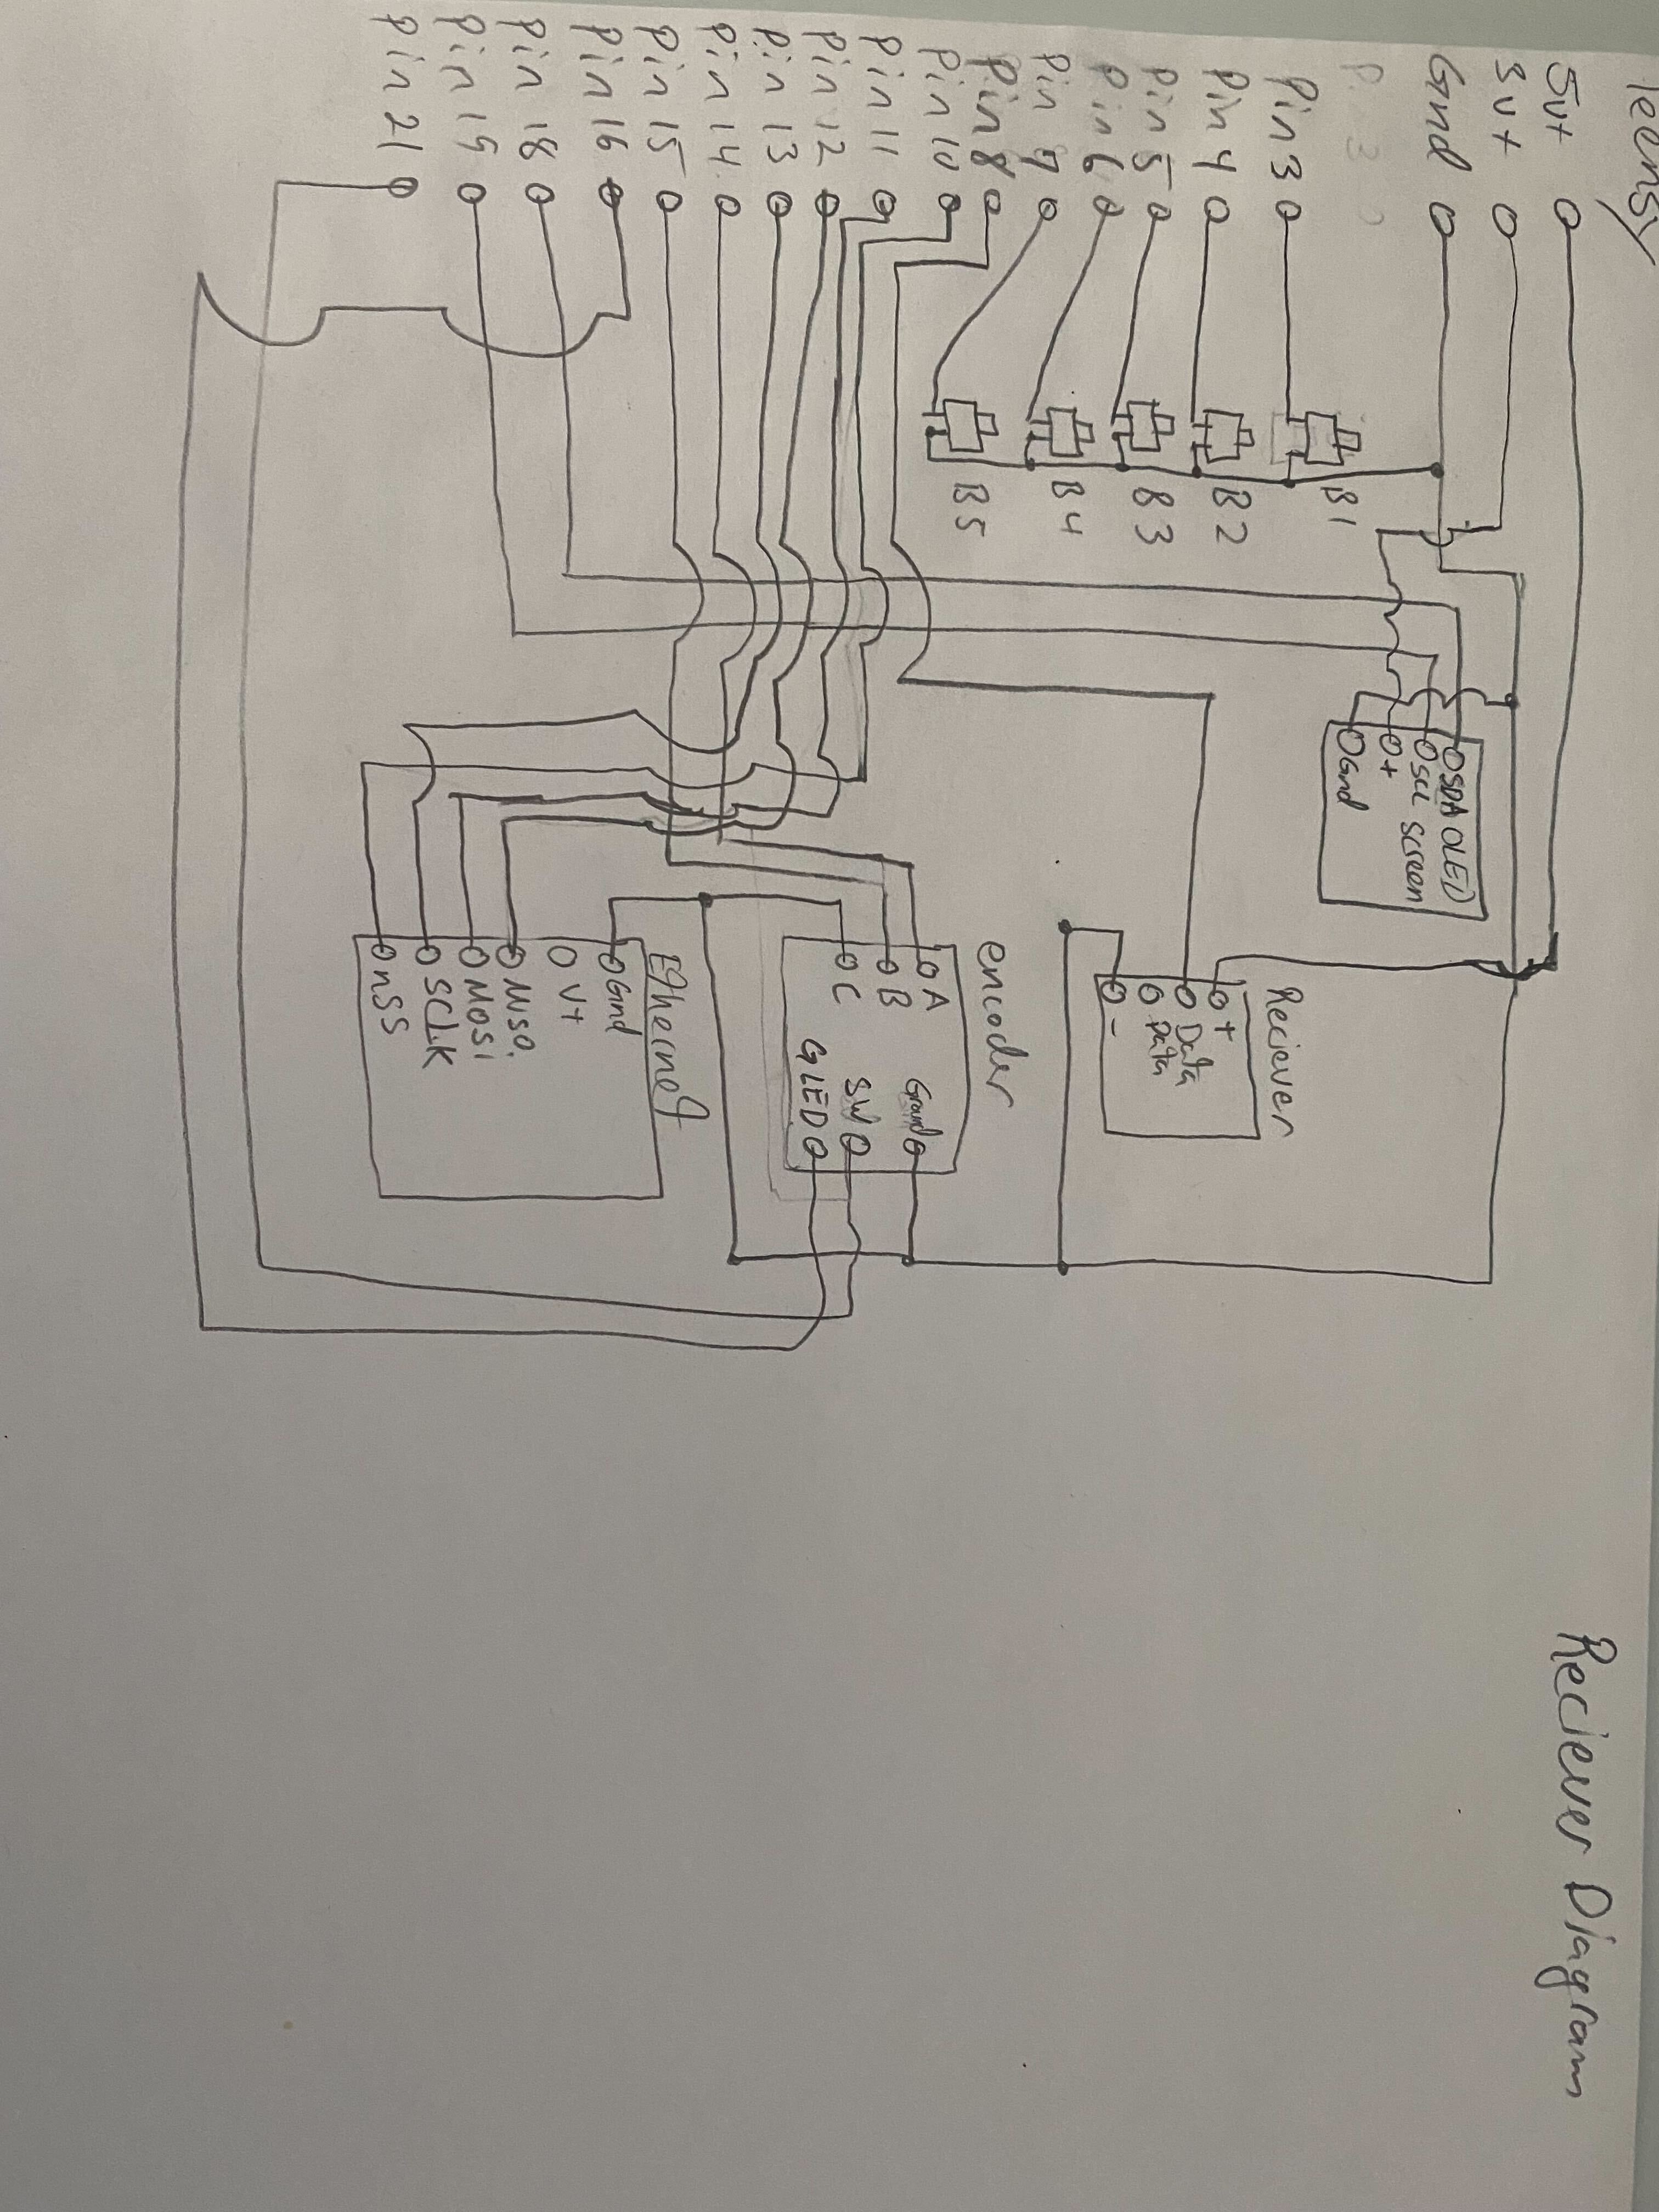 Reciever Diagram
Teensy
5v+
3v+
Gnd
Pin 3
Pin 3
Pin 4
Pin 5
Pin 6
Pin 9
Pin 8
Pin 10
Pin 11
Pin 12
Pin 13
Pin 14
Pin 15
Pin 16
Pin 18
Pin 19
Pin 21
B1
B2
B3
B4
B5
SDA OLED
SCL Screen
+
Gnd
Reciever
+
Data
Data
-
encoder
A
B
C
Ground
SW
GLED
Ethernet
Gnd
V+
MISO
MOSI
SCLK
nSS